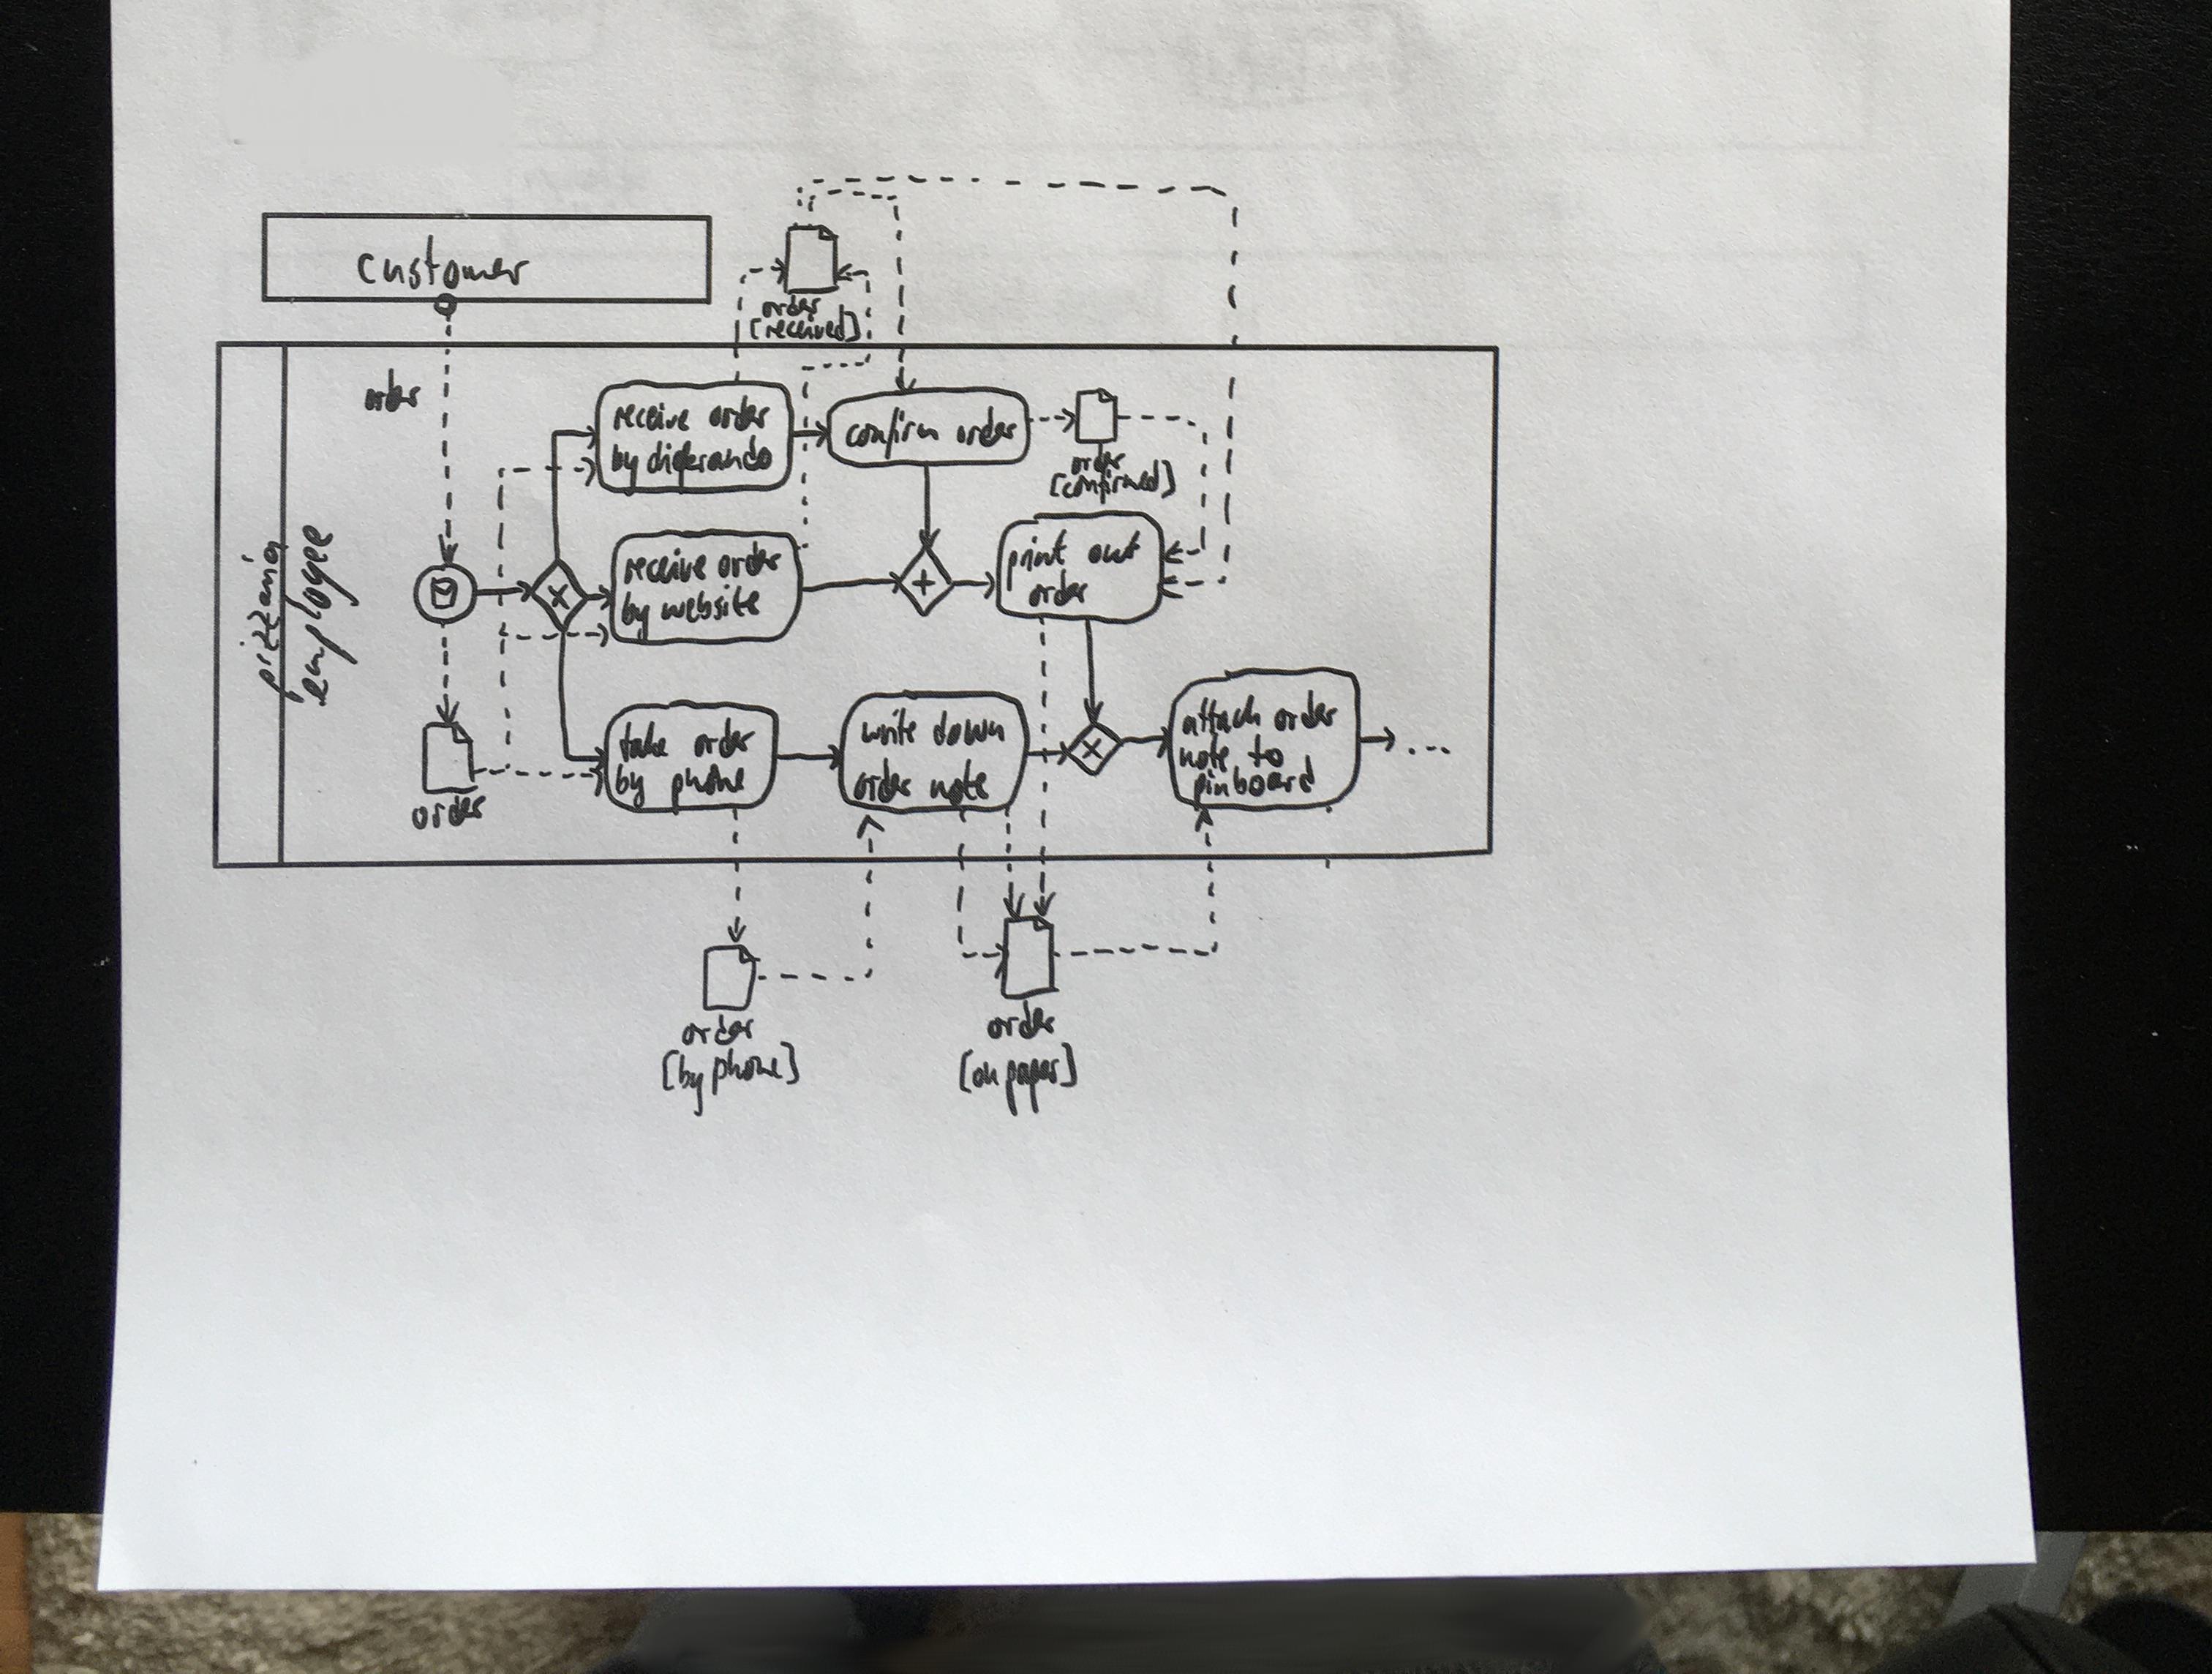 customer
order
[received]
order
receive order
by digerando
confirm order
order
[confirmed]
pizzeria
employee
receive order
by website
print out
order
take order
by phone
write down
order note
attach order
note to
pinboard
...
order
order
[by phone]
order
[on paper]